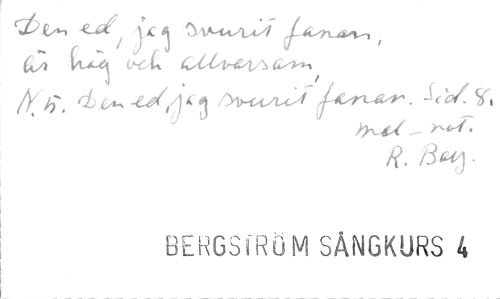 Den ed, jag svurit fanan,
är hög och allvarsam,
N. 5. Den ed, jag svurit fanan. Sid. 8.
mel-not.
R. Bay.
BERGSTRÖM SÅNGKURS 4